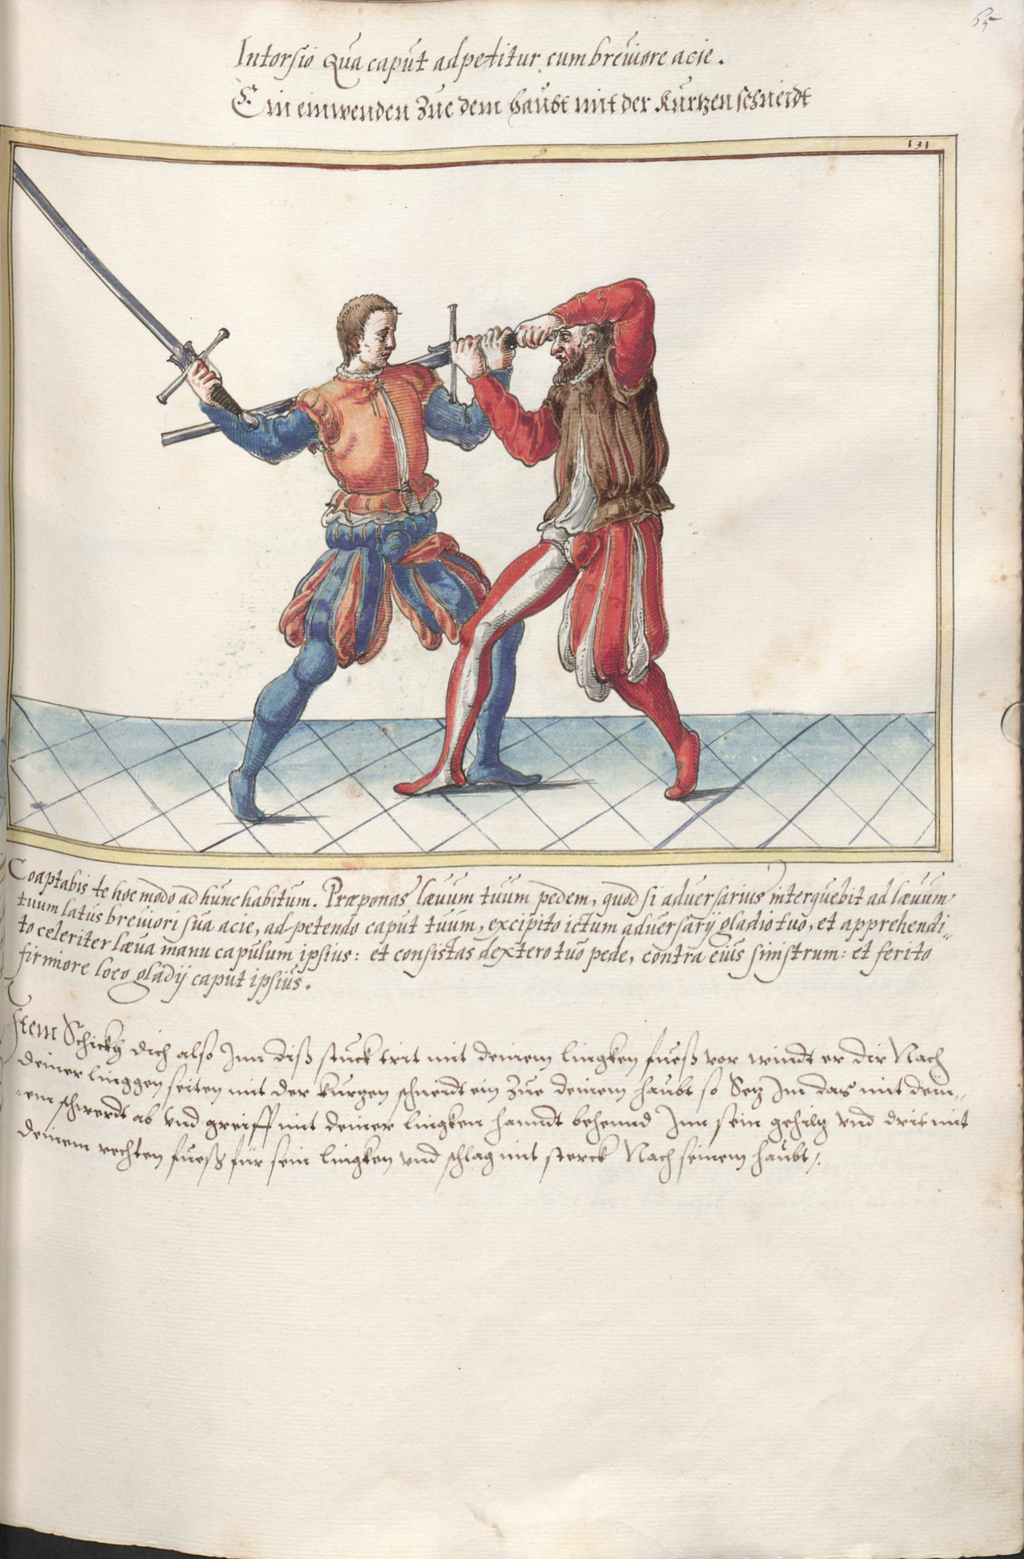 65
Intorsio Qua caput adpetitur cum breuiore acie.
Ein einwenden Zue dem haubt mit der kurtzen schneidt
131
Coaptabis te hoc modo ad hunc habitum. Præponas læuum tuum pedem, quod si aduersarius interquebit ad læuum
tuum latus breuiori sua acie, ad-petendo caput tuum, excipito ictum aduersarij gladio tuo, et apprehendi-
to celeriter læua manu capulum ipsius: et consistas dextero tuo pede, contra eius sinistrum: et ferito
firmiore loco gladij caput ipsius.
Item Schickh dich also Inn diß stuck trit mit deinem lingken fuess vor windt er dir Nach
deiner linggen seiten mit der kurzen schneidt ein Zue deinem haubt so Setz Im das mit dein-
em schwerdt ab vnd greiff mit deiner lingken handt behennd Inn sein gehiltz vnd drit mit
deinem rechten fuess für sein lingken vnd schlag mit sterck Nach seinem haubt/.